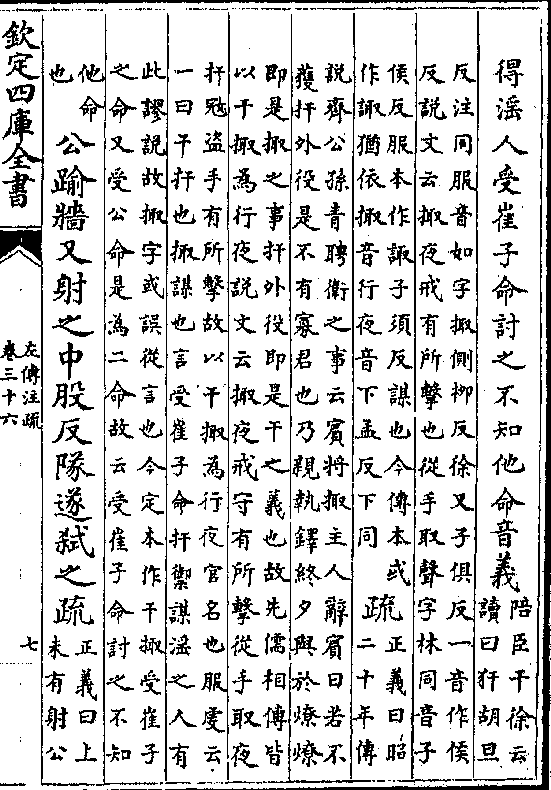 得滛人受崔子命討之不知他命音義
陪臣干徐云
讀曰犴胡旦
反注同服音如字掫側栁反徐又子俱反一音作侯
反說文云掫夜戒有所擊也從手取聲字林同音子
侯反服本作諏子須反謀也今傳本或
作諏猶依掫音行夜音下孟反下同
疏
正義曰昭
二十年傳
說齊公孫青聘衛之事云賔將掫主人辭賔曰若不
獲扞外役是不有寡君也乃親執鐸終夕與於燎燎
即是掫之事扞外役即是干之義也故先儒相傳皆
以干掫為行夜說文云掫夜戒守有所擊從手取夜
扞冦盗手有所擊故以干掫為行夜官名也服䖍云
一曰干扞也掫謀也言受崔子命扞禦謀滛之人有
此謬說故掫字或誤從言也今定本作干掫受崔子
之命又受公命是為二命故云受崔子命討之不知
他命
也
公踰牆又射之中股反隊遂弑之疏
正義曰上
未有射公
欽定四庫全書
左傳注疏
卷三十六
七